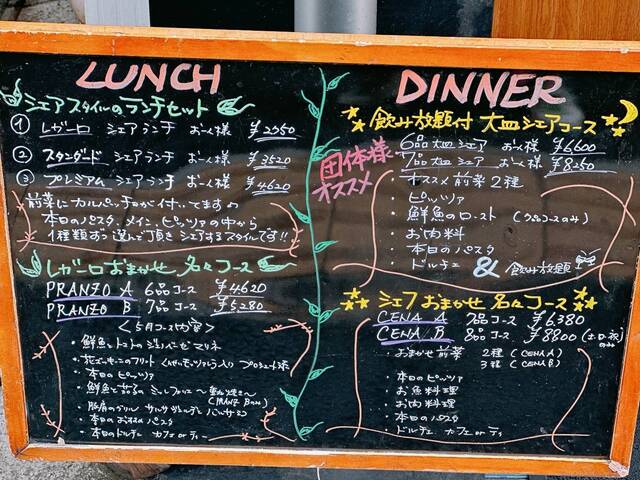 LUNCH
シェアスタイルのランチセット
① レガーロ シェアランチ お一人様 ¥2750
② スタンダード シェアランチ お一人様 ¥3520
③ プレミアム シェアランチ お一人様 ¥4620
前菜にカルパッチョが付いてます♪
本日のパスタ、メイン、ピッツァの中から
1種類ずつ選んで頂き シェアするスタイルです!!
レガーロおまかせ 名々コース
PRANZO A 6品コース ¥4620
PRANZO B 7品コース ¥5280
<5月コース内容>
・鮮魚と
マリネ
・花ズッキーニのフリット
・本日のピッツァ
・鮮魚と
(PRANZO Bのみ)
・豚肩のグリル サルサヴェルデ
・本日のおススメ パスタ
・本日のドルチェ カフェ or ティー
団体様
オススメ
DINNER
飲み放題付 大皿シェアコース
6品大皿シェア お一人様 ¥6600
7品大皿シェア お一人様 ¥8250
・オススメ 前菜2種
・ピッツァ
・鮮魚のロースト (7品コースのみ)
・お肉料理
・本日のパスタ
・ドルチェ & 飲み放題
シェフおまかせ 名々コース
CENA A 7品コース ¥6,380
CENA B 8品コース ¥8800 (土日祝のみ)
・おまかせ前菜 2種 (CENA A)
3種 (CENA B)
・本日のピッツァ
・お魚料理
・お肉料理
・本日のパスタ
・ドルチェ カフェ or ティ